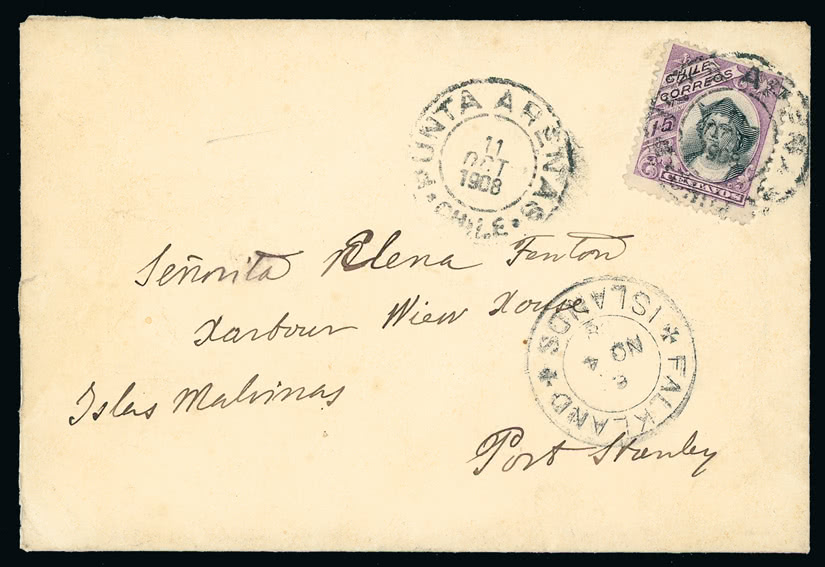 CHILE
CORREOS
15
CENTAVOS
PUNTA ARENAS
11
OCT
1908
CHILE
Señorita Elena Fenton
Harbour View House
Islas Malvinas
Port Stanley
FALKLAND ISLANDS
NO
4